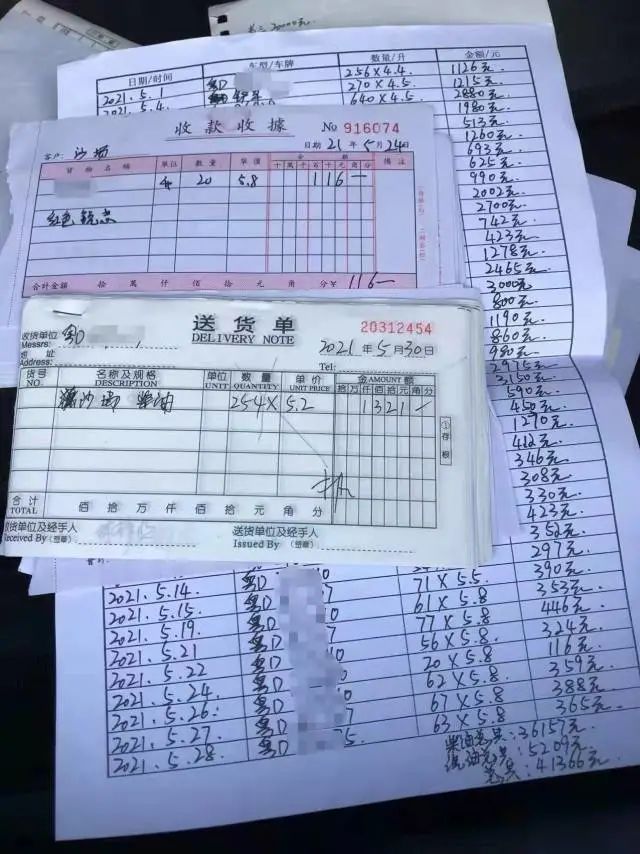 共三20000元
日期/时间 车型/车牌 数量/升 金额/元
2021.5.1 粤D 256×4.4 1126元
2021.5.4 粤D 270×4.5 1215元
640×4.5 2880元
1980元
513元
1260元
693元
625元
990元
2002元
2700元
742元
423元
1278元
2465元
3000元
800元
1190元
860元
980元
2975元
3150元
590元
450元
1270元
412元
346元
308元
330元
423元
352元
297元
390元
收款收據 No 916074
日期 21年5月24日
客户: 沙场
貨物名稱 單位 數量 單價 金額 備注
十萬千百十元角分
4 20 5.8 116—
红色锐志
合計金額 拾 萬 仟 佰 拾 元 角 分¥ 116—
送货单 20312454
DELIVERY NOTE
收货单位 粤D
Messrs: 2021年5月30日
地址
Address: Tel:
货号 名称及规格 单位 数量 单价 金AMOUNT额
NO. DESCRIPTION UNIT QUANTITY UNIT PRICE 拾万仟佰拾元角分
沙场 柴油 254× 5.2 1321—
①存根
合计
TOTAL 佰 拾 万 仟 佰 拾 元 角 分
收货单位及经手人 送货单位及经手人
Received By (签章) Issued By (签章)
2021.5.14 粤D 71×5.5 353元
2021.5.15 粤D 61×5.8 446元
2021.5.19 粤D 77×5.8 324元
2021.5.21 粤D 56×5.8 116元
2021.5.22 粤D 20×5.8 359元
2021.5.24 粤D 62×5.8 388元
2021.5.26 粤D 67×5.8 365元
2021.5.27 粤D 63×5.8
2021.5.28 粤D
柴油总共:36157元
汽油总共:5209元
总共:41366元